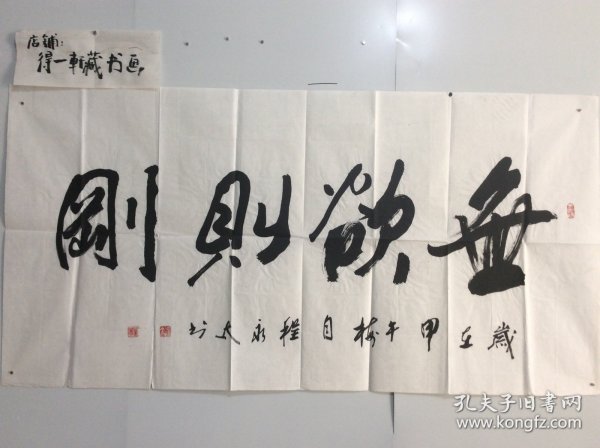 店铺:
得一轩藏书画
無欲則剛
歲在甲午梅月程永文书
孔夫子旧书网
www.kongfz.com